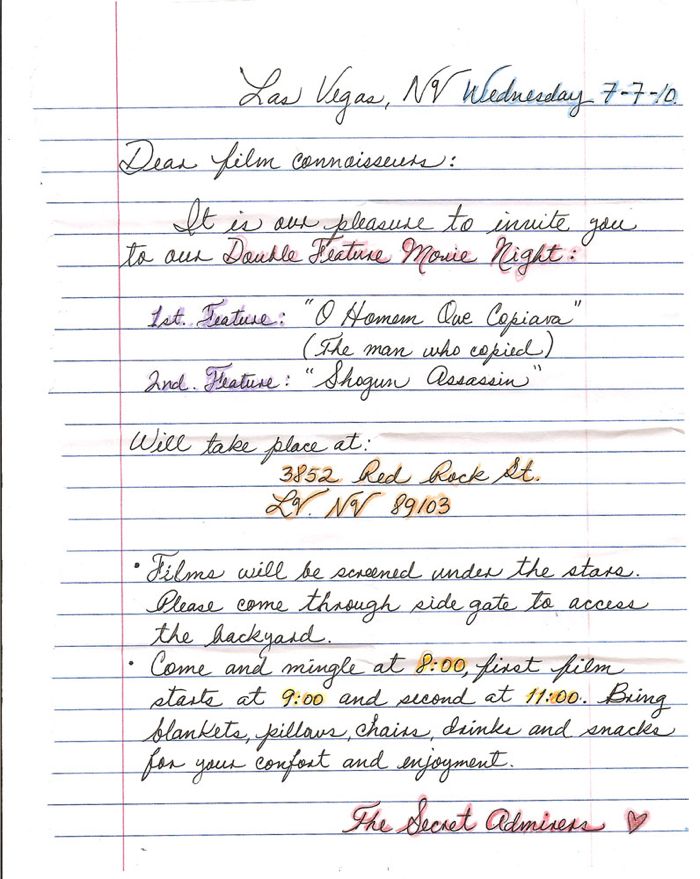 Las Vegas, NV Wednesday 7-7-10.
Dear film connoisseurs:
It is our pleasure to invite you
to our Double Feature Movie Night:
1st. Feature: "O Homem Que Copiava"
(The man who copied)
2nd. Feature: "Shogun Assassin"
Will take place at:
3852 Red Rock St.
LV. NV 89103
• Films will be screened under the stars.
Please come through side gate to access
the backyard.
• Come and mingle at 8:00, first film
starts at 9:00 and second at 11:00. Bring
blankets, pillows, chairs, drinks and snacks
for your confort and enjoyment.
The Secret Admirers ♡